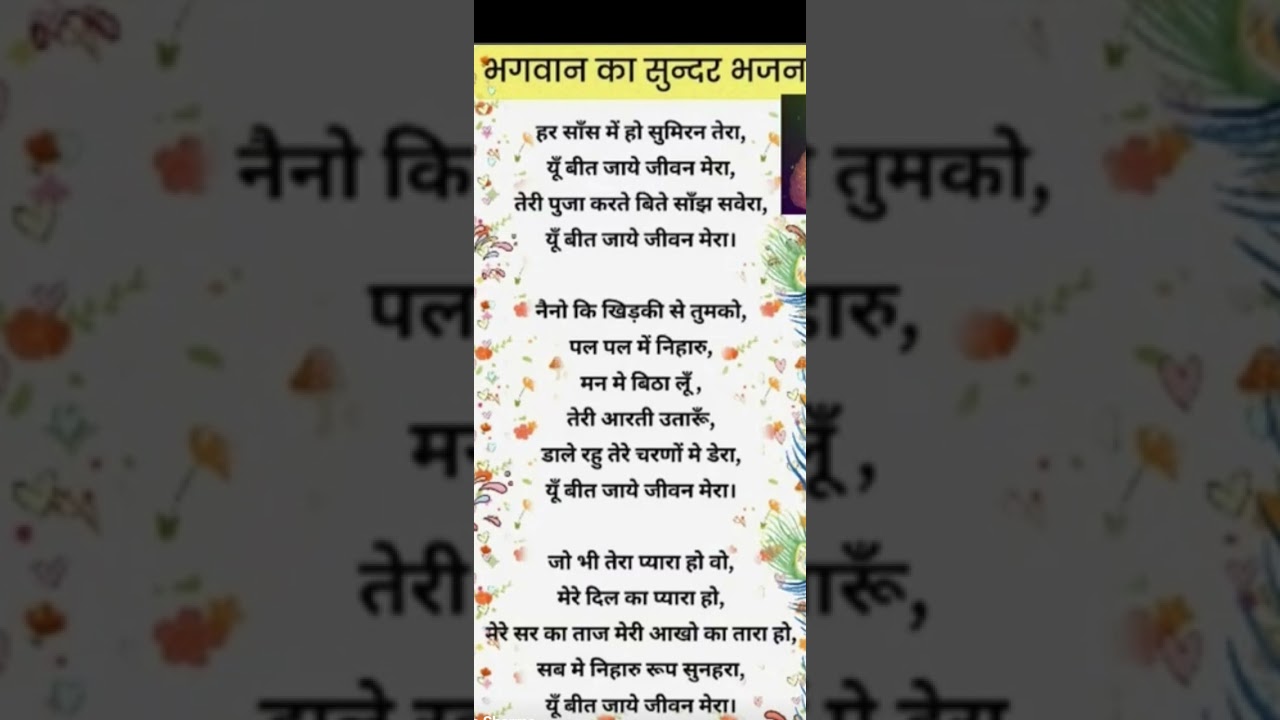 भगवान का सुन्दर भजन
हर साँस में हो सुमिरन तेरा,
यूँ बीत जाये जीवन मेरा,
तेरी पुजा करते बिते साँझ सवेरा,
यूँ बीत जाये जीवन मेरा।
नैनो कि खिड़की से तुमको,
पल पल में निहारु,
मन मे बिठा लूँ ,
तेरी आरती उतारूँ,
डाले रहु तेरे चरणों मे डेरा,
यूँ बीत जाये जीवन मेरा।
जो भी तेरा प्यारा हो वो,
मेरे दिल का प्यारा हो,
मेरे सर का ताज मेरी आखो का तारा हो,
सब मे निहारु रूप सुनहरा,
यूँ बीत जाये जीवन मेरा।